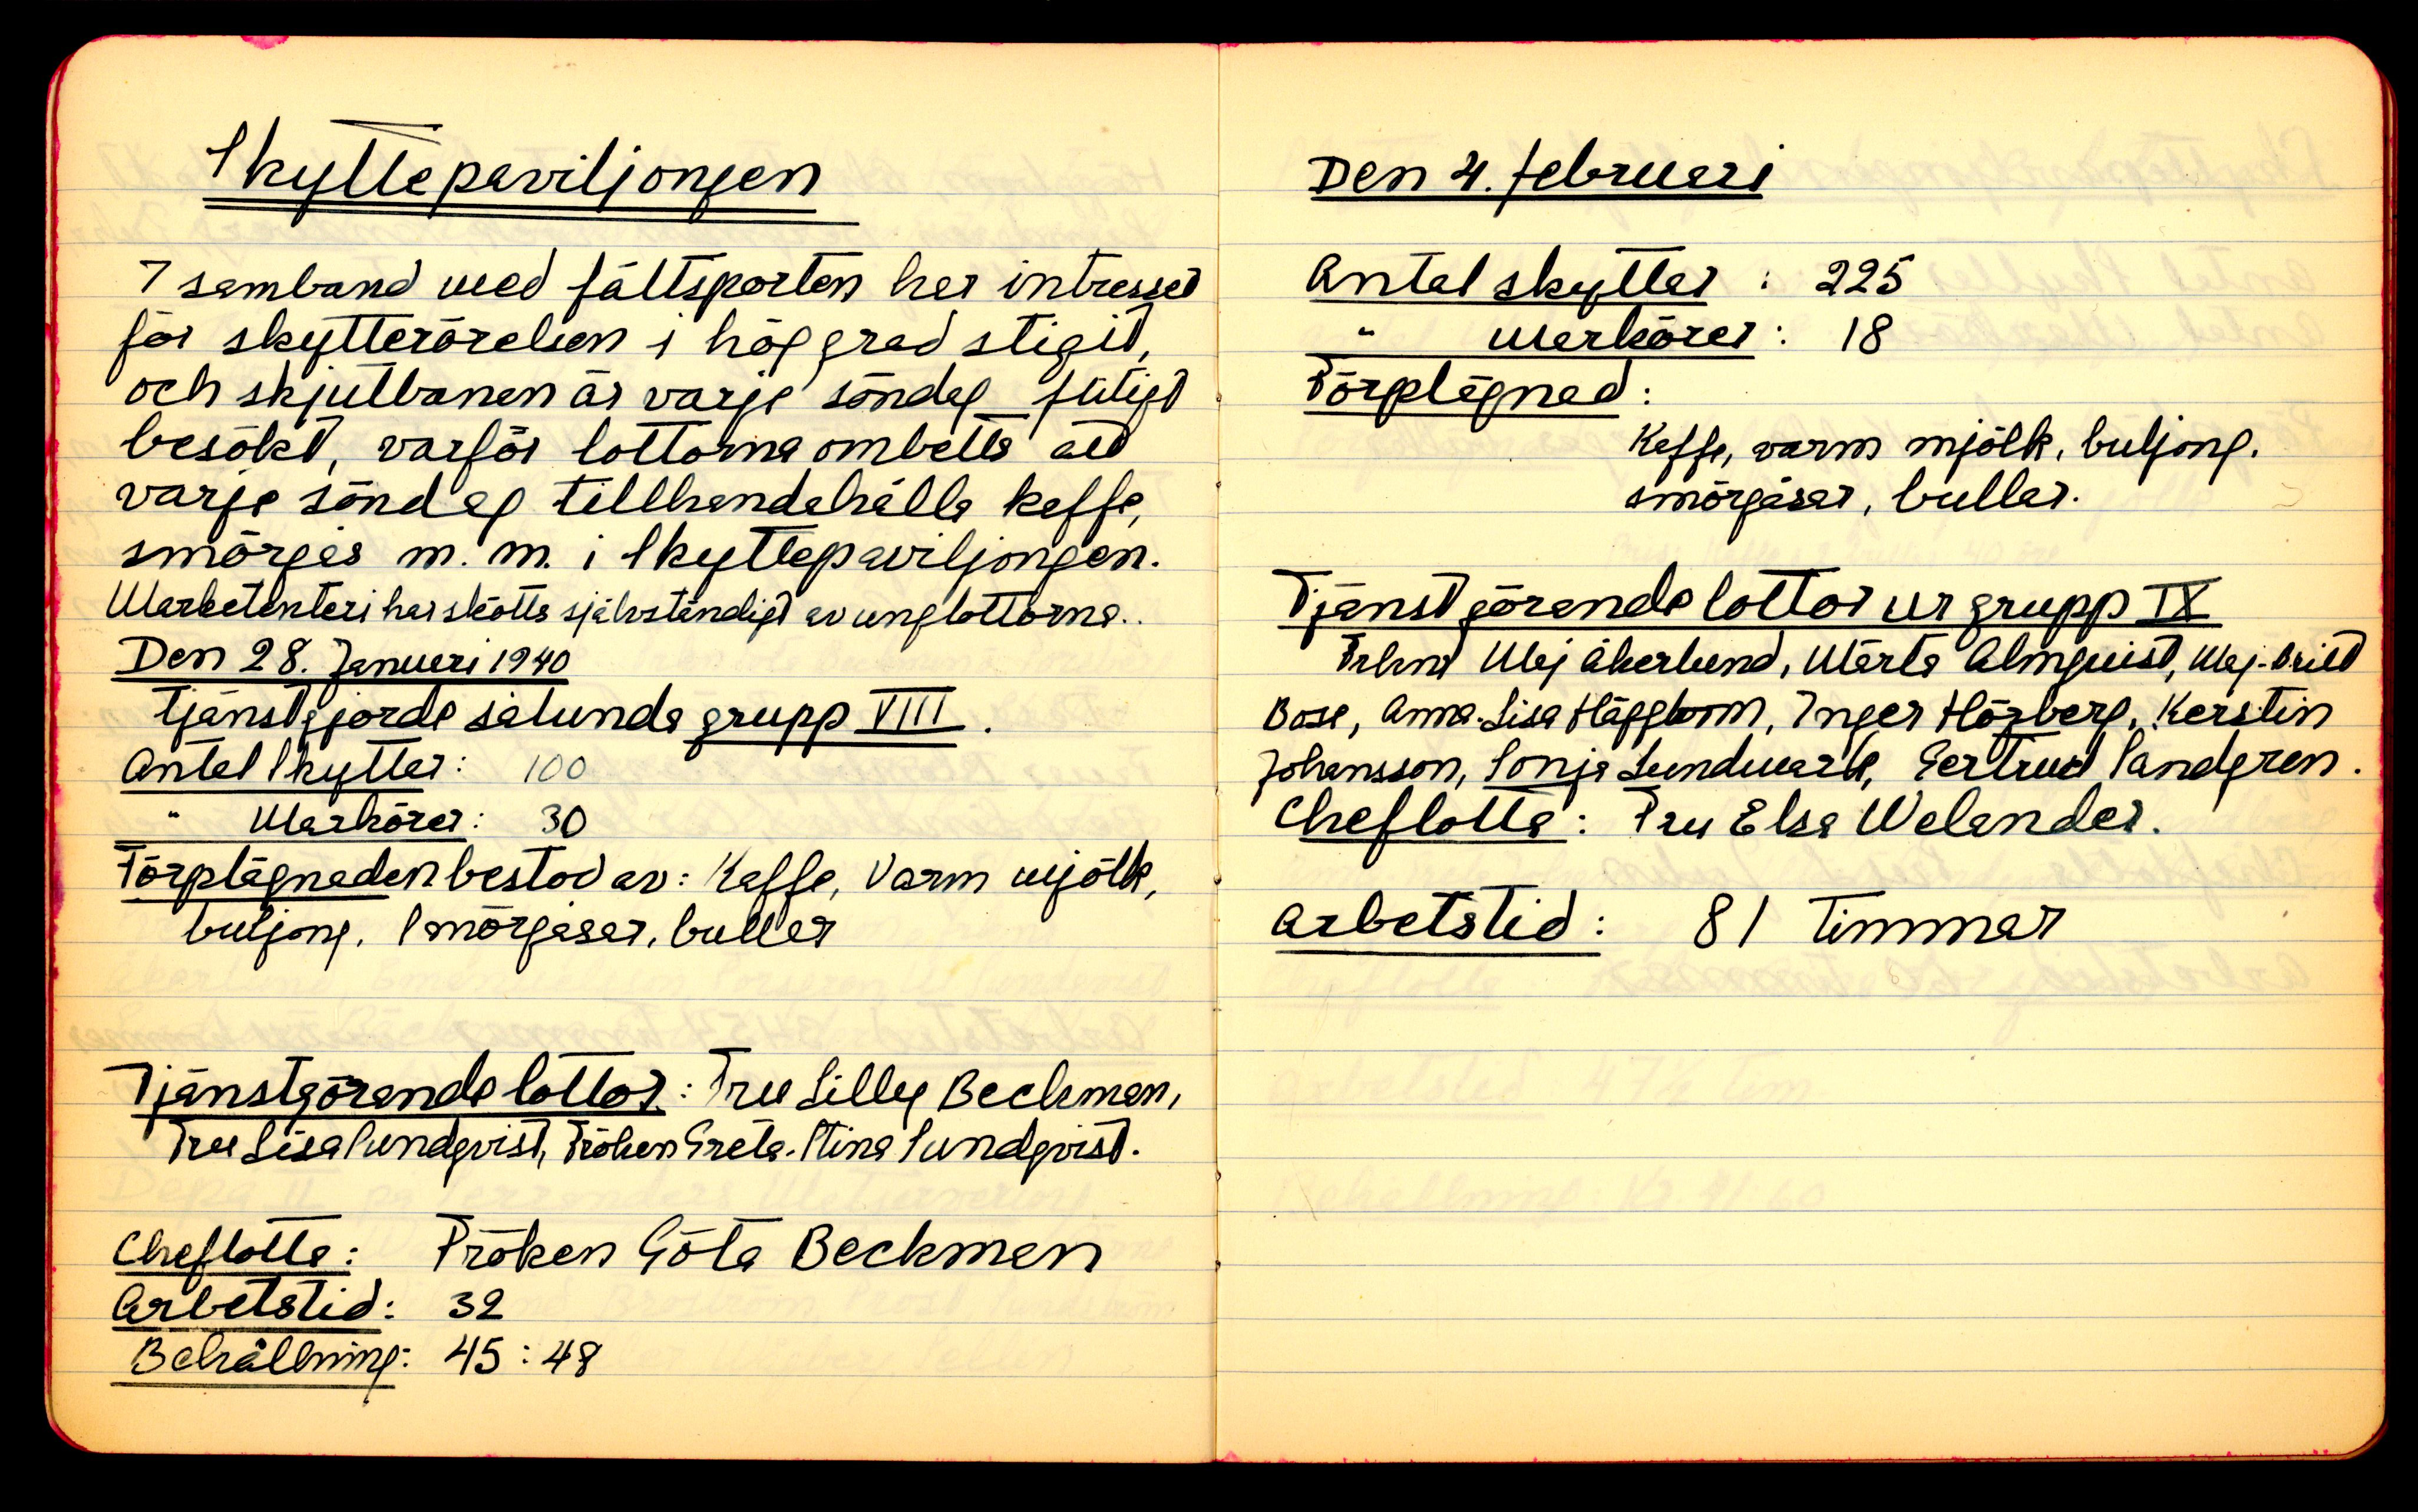 Skyttepaviljongen
I samband med fältsporten har intresset
för skytterörelsen i hög grad stigit,
och skjutbanan är varje söndag flitigt
besökt, varför lottorna ombetts att
varje söndag tillhandahålla kaffe,
smörgås m. m. i Skyttepaviljongen.
Marketenteri har skötts självständigt av unglottorna..
Den 28. Januari 1940
tjänstgjorde sålunda grupp VIII.
Antal Skyttar: 100
" Markörer: 30
Förplägnaden bestod av: Kaffe, Varm mjölk,
buljong, Smörgåsar, bullar
Tjänstgörande lottor: Fru Lilly Beckman,
Fru Lisa Sundqvist, Fröken Greta-Stina Sundqvist.
Cheflotta: Fröken Göta Beckman
Arbetstid: 32
Behållning: 45:48
Den 4. februari
Antal skyttar : 225
" Markörer: 18
Förplägnad:
Kaffe, varm mjölk, buljong.
smörgåsar, bullar.
Tjänstgörande lottor ur grupp IX
Maj Åkerlund, Märta Almquist, Maj-Britt
Bose, Anna-Lisa Häggbom, Inger Högberg, Kerstin
Johansson, Sonja Lundmark, Gertrud Sandgren.
Cheflotta: Fru Elsa Welander.
Arbetstid: 81 Timmar